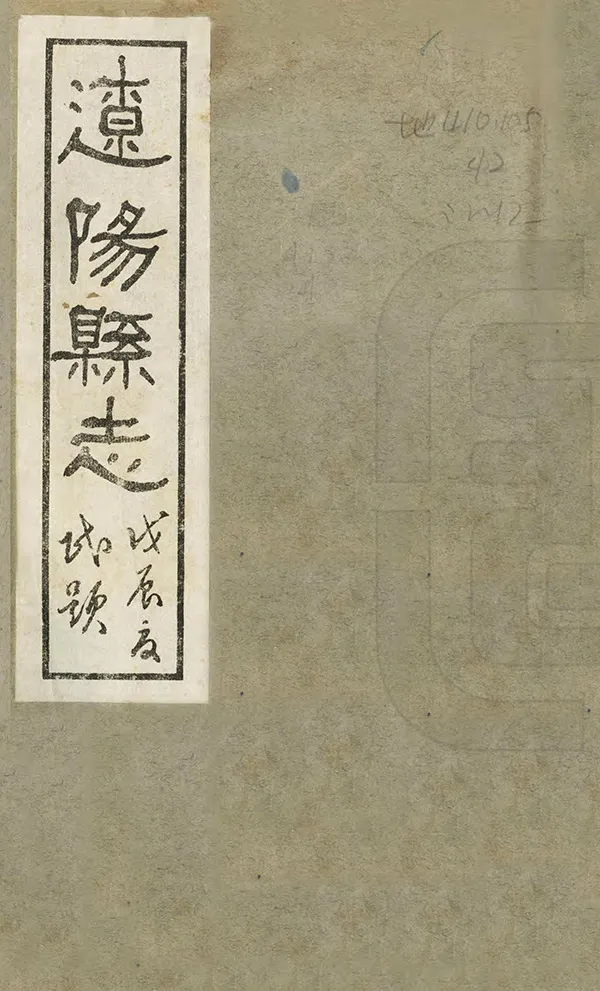 遼陽縣志
戊辰夏
題
地410.105
42